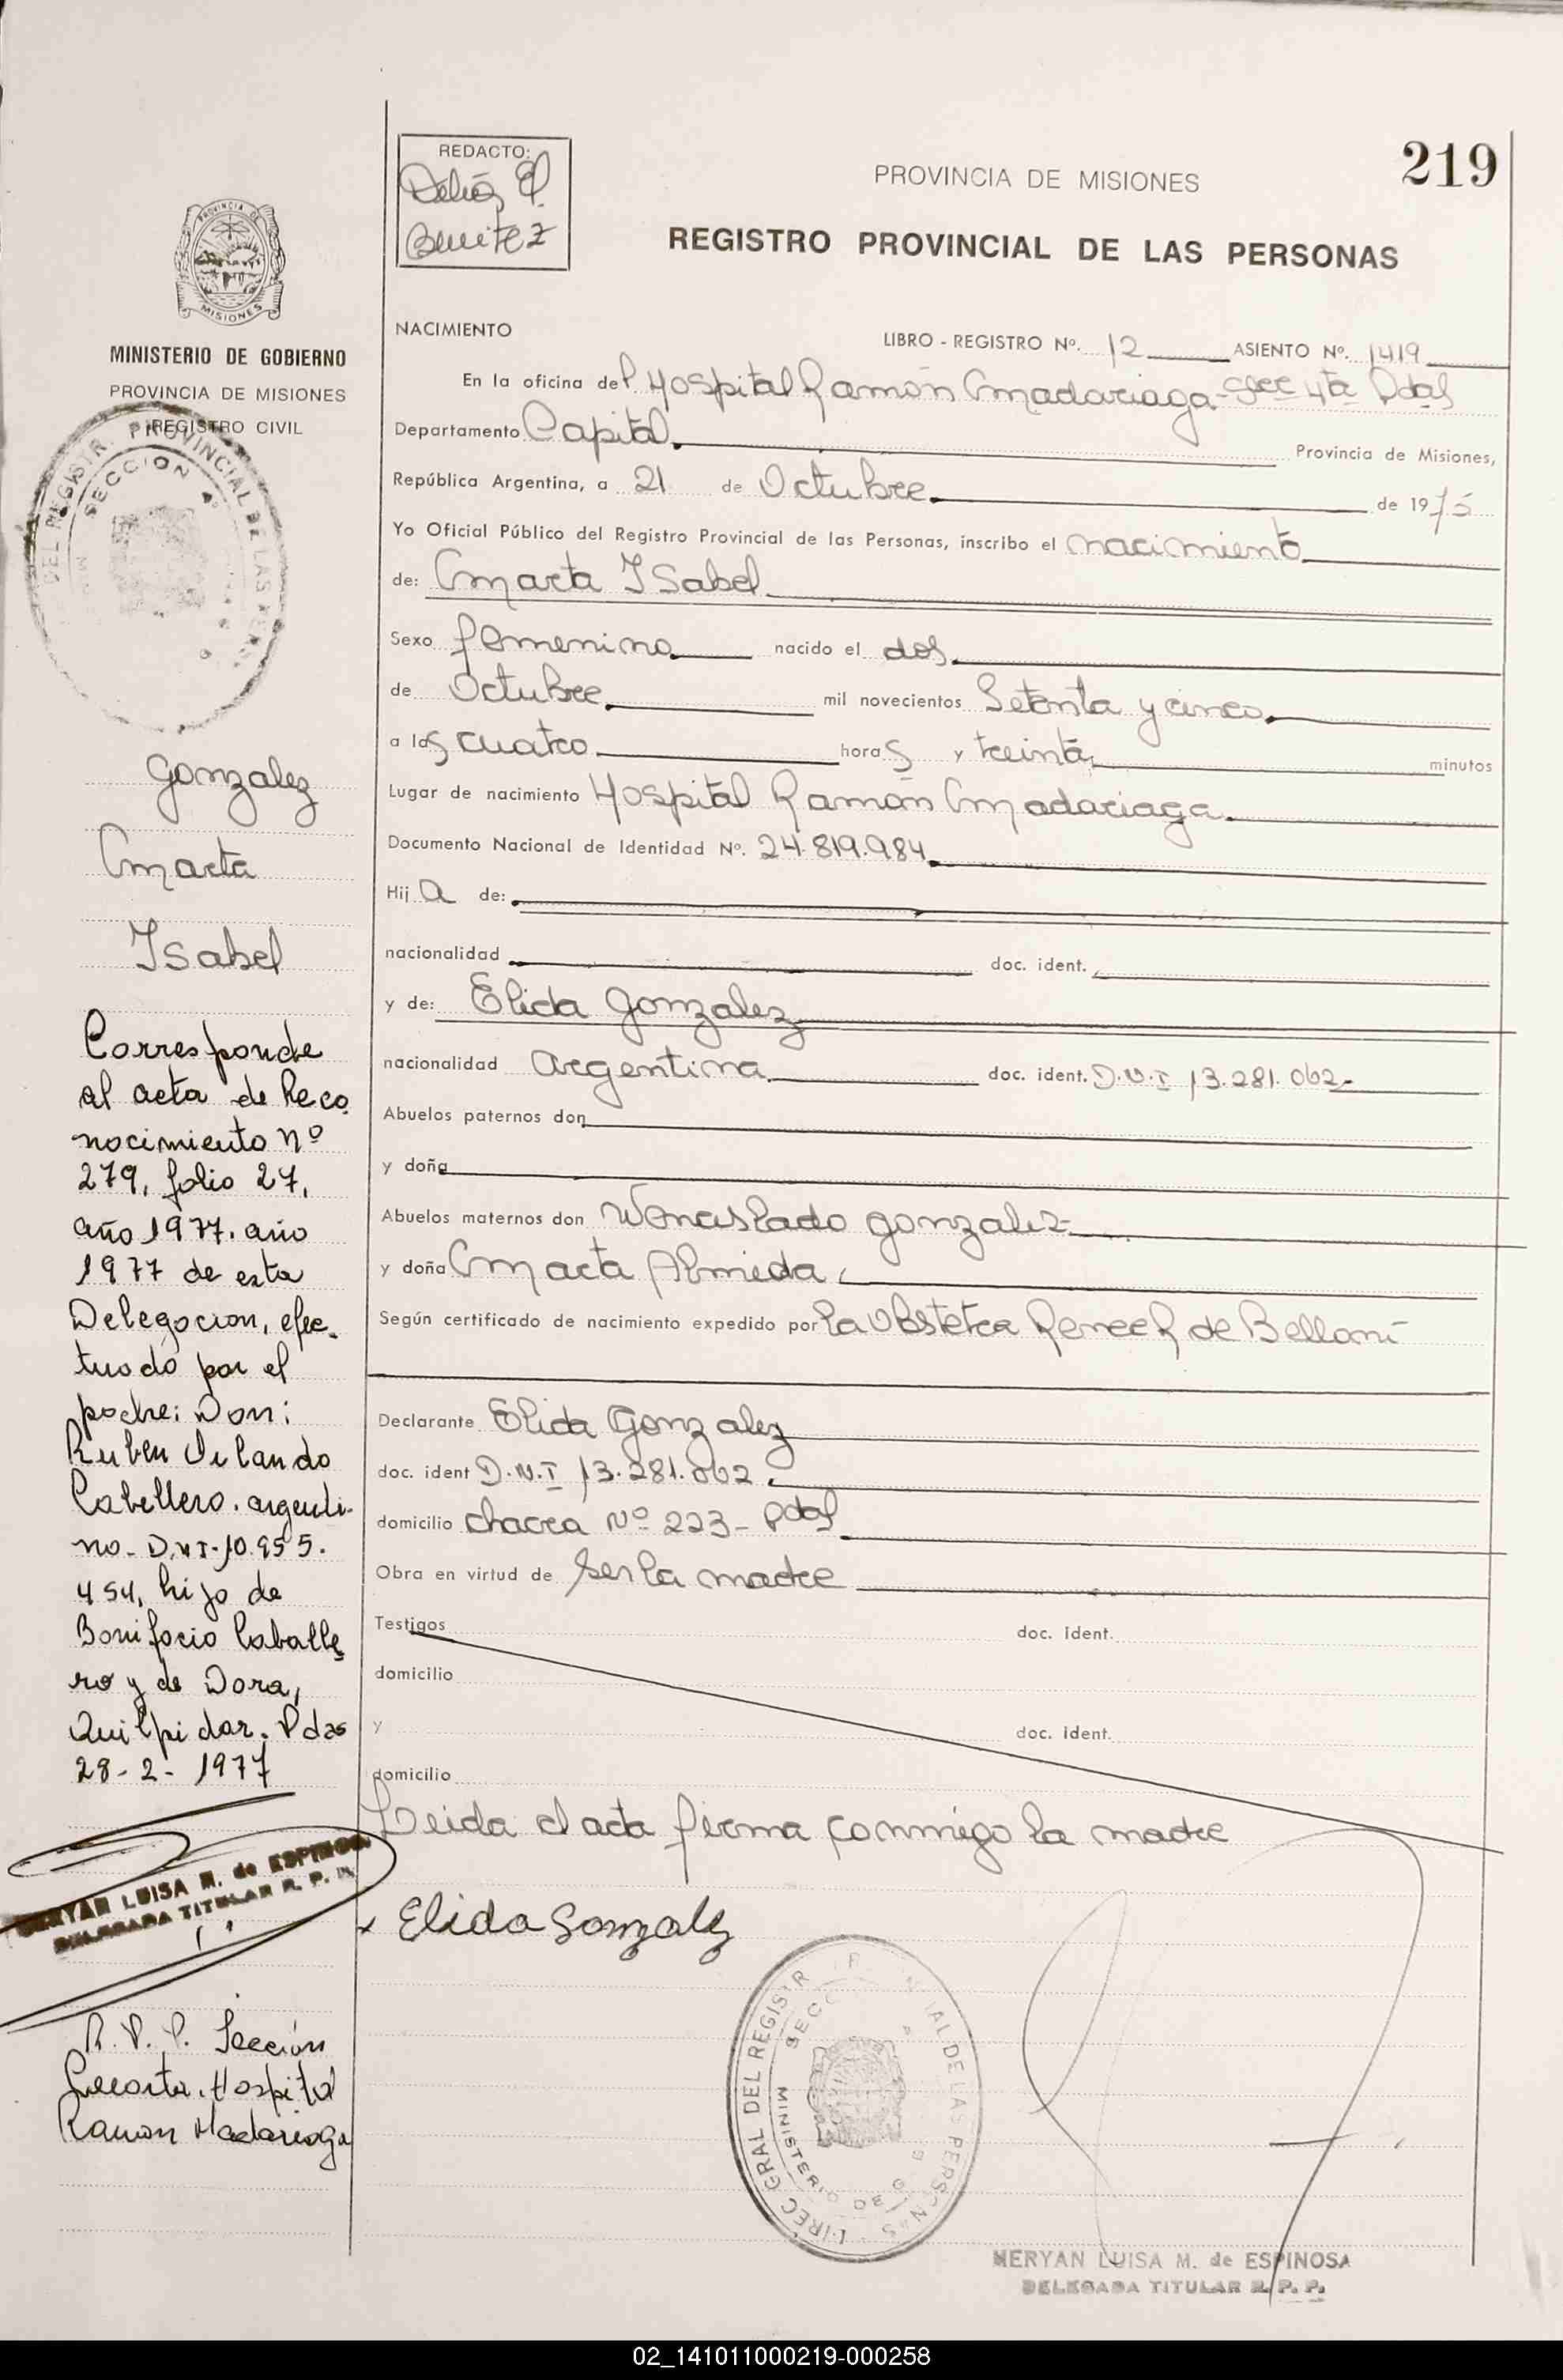 219
REDACTO:
Benitez
PROVINCIA DE MISIONES
REGISTRO PROVINCIAL DE LAS PERSONAS
MISIONES
MINISTERIO DE GOBIERNO
PROVINCIA DE MISIONES
REGISTRO CIVIL
NACIMIENTO
LIBRO - REGISTRO Nº. 12 ASIENTO Nº. 1419
En la oficina del Hospital Ramón Madariaga - Secc 4ta Pdas
Departamento Capital. Provincia de Misiones,
República Argentina, a 21 de Octubre de 1975
Yo Oficial Público del Registro Provincial de las Personas, inscribo el nacimiento
de: Marta Isabel
Sexo femenino nacido el dos
de Octubre mil novecientos Setenta y cinco
a las cuatro horas y treinta minutos
Lugar de nacimiento Hospital Ramón Madariaga.
Documento Nacional de Identidad Nº. 24.819.984
Hija de:
nacionalidad doc. ident.
y de: Elida Gonzalez
nacionalidad argentina doc. ident. D.N.I 13.281.062-
Abuelos paternos don
y doña
Abuelos maternos don Wenceslado Gonzalez
y doña Marta Almeida
Según certificado de nacimiento expedido por la Obstetra Renee R de Belloni
Declarante Elida Gonzalez
doc. ident D.N.I 13.281.062
domicilio chacra Nº 223 - Pdas
Obra en virtud de ser la madre
Testigos doc. ident.
domicilio
y doc. ident.
domicilio
Leida el acta firma conmigo la madre
x Elida Gonzalez
Gonzalez
Marta
Isabel
Corresponde
al acta de Reco
nocimiento nº
279, folio 27,
año 1977. año
1977 de esta
Delegacion, efec-
tuado por el
padre: Don:
Ruben Orlando
Caballero. argenti-
no - D.N.I-10.955.
454, hijo de
Bonifacio Caballe
ro y de Dora,
Quilpidor. Pdas
28-2-1977
MERYAN LUISA M. de ESPINOSA
DELEGADA TITULAR R. P. P.
R. P. P. Sección
cuarta. Hospital
Ramon Madariaga
DIREC GRAL DEL REGISTR PROVINCIAL DE LAS PERSONAS
SECC
MINISTERIO DE G
MERYAN LUISA M. de ESPINOSA
DELEGADA TITULAR R. P. P.
02_141011000219-000258